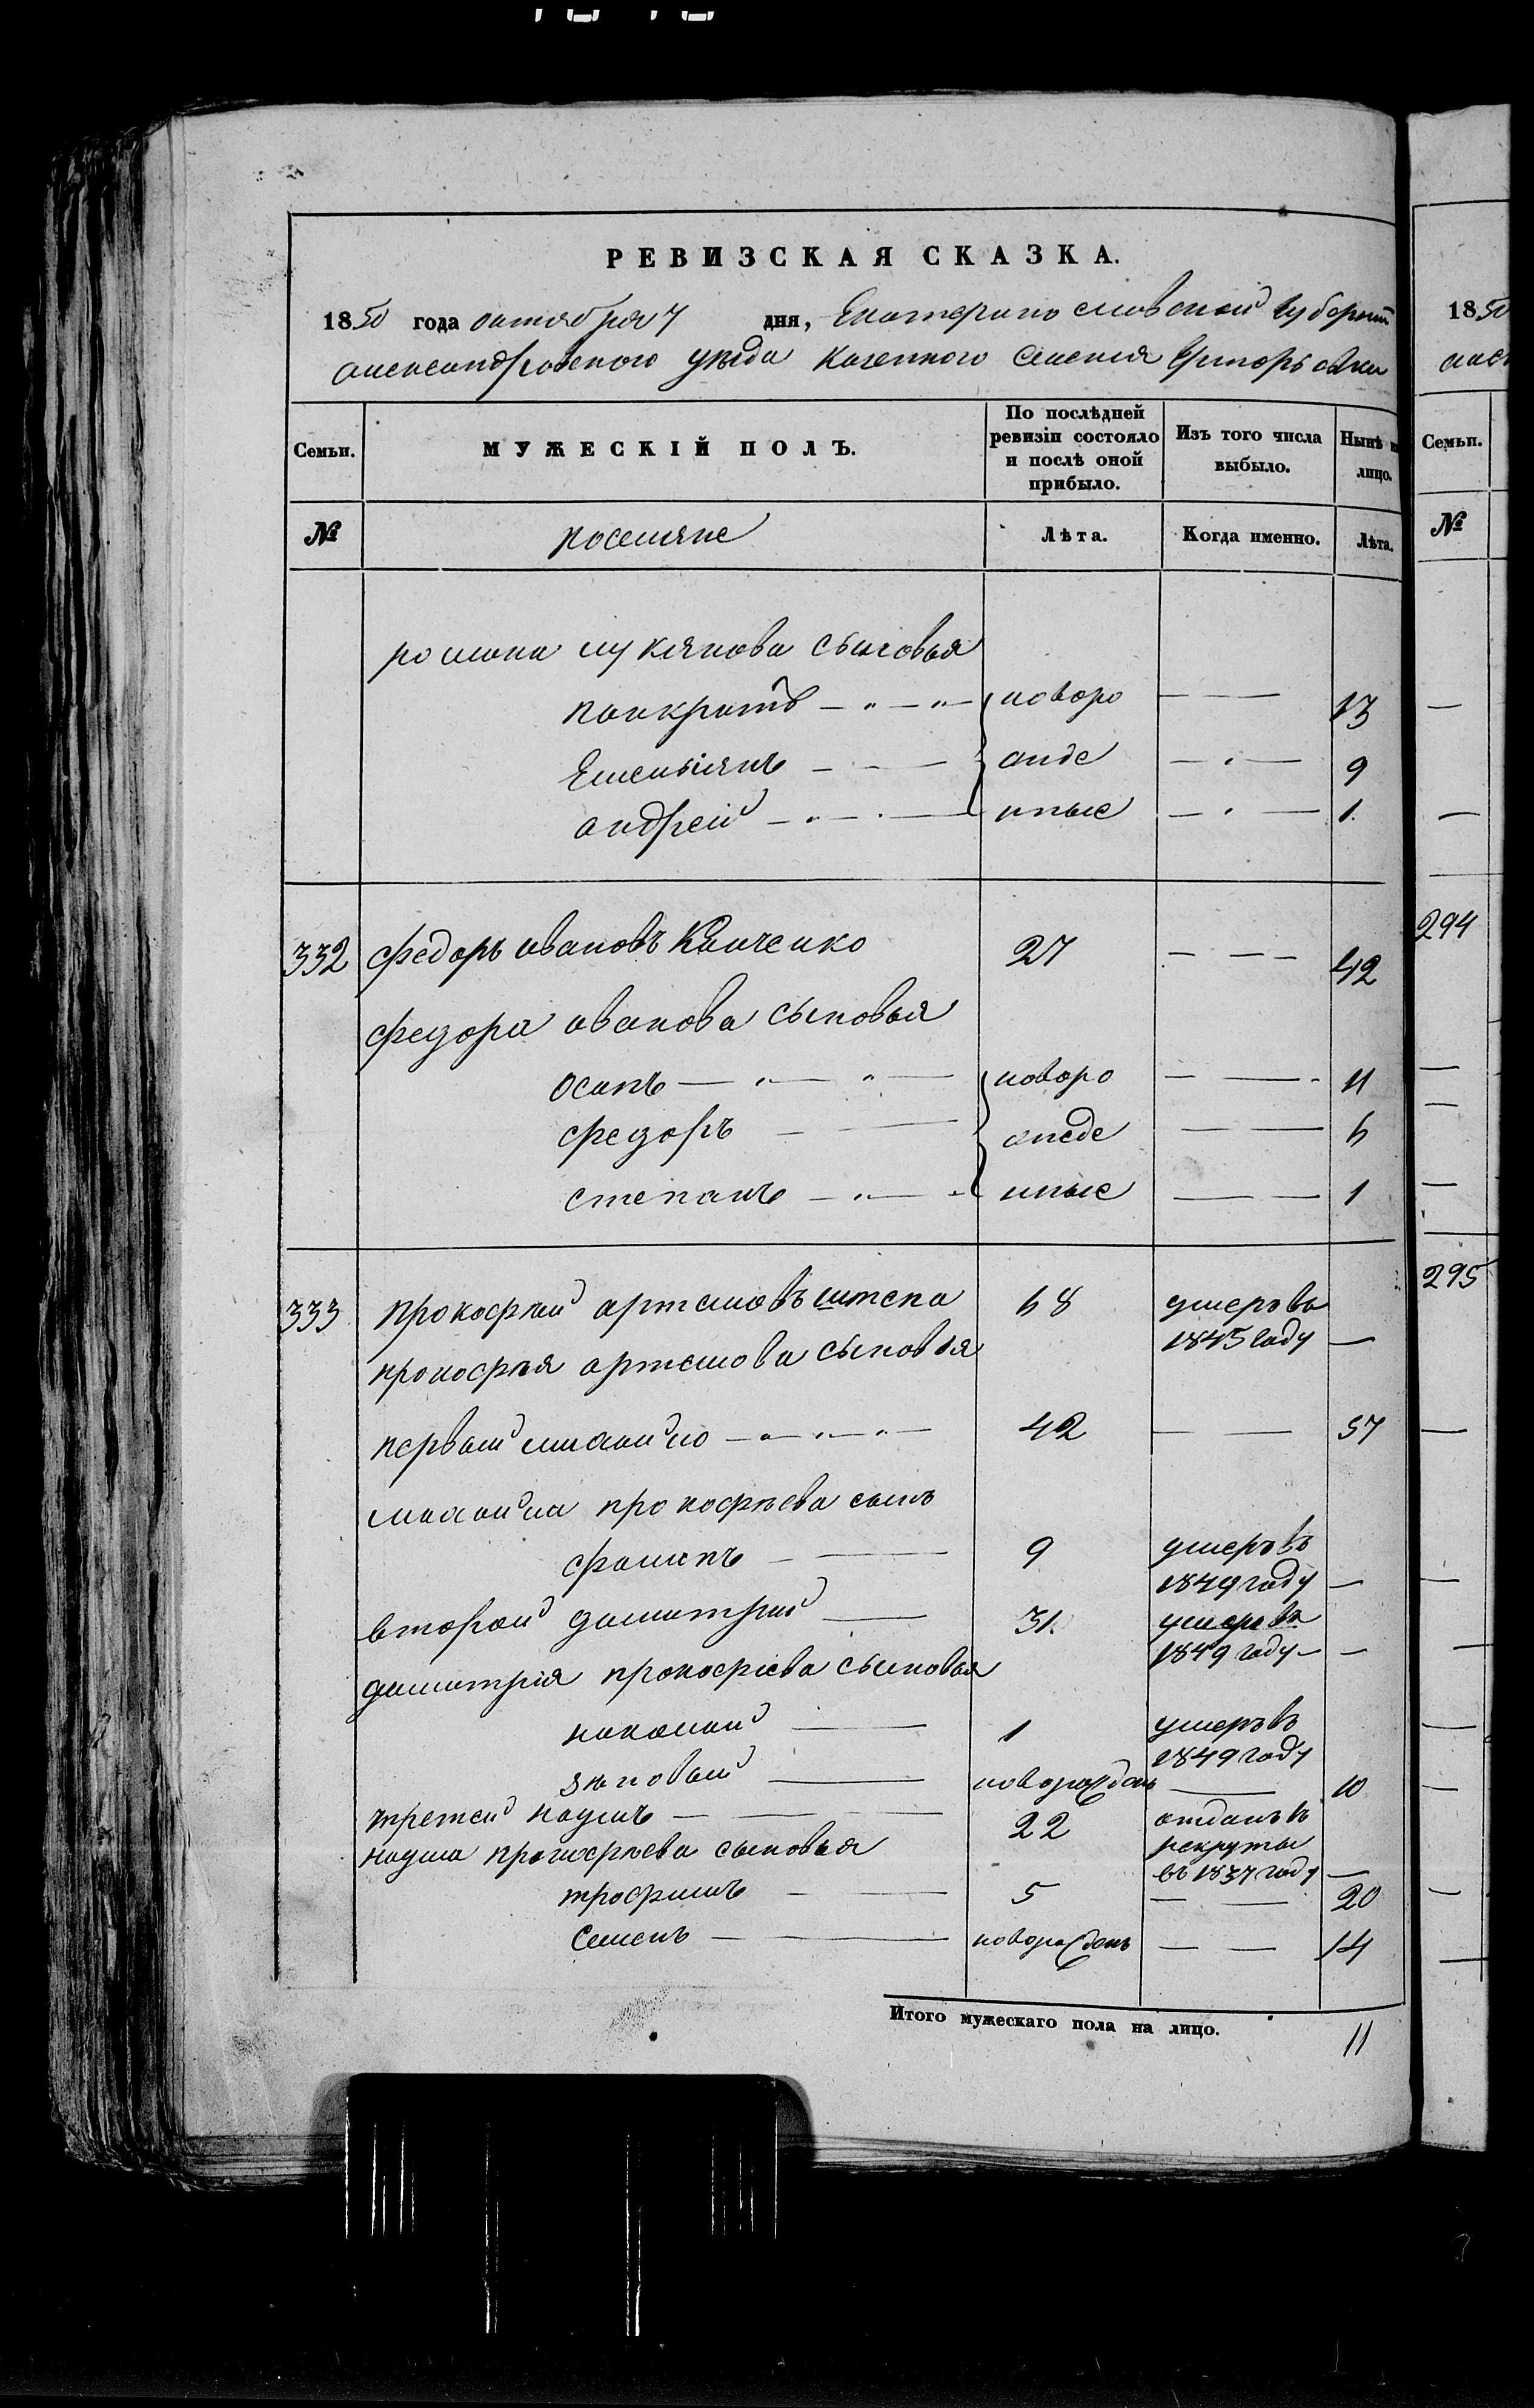 РЕВИЗСКАЯ СКАЗКА.
1850 года октября 7 дня, Екатеринославской губернии
александровского уезда Казенного селения
Семьи. МУЖЕСКІЙ ПОЛЪ. По послѣдней ревизіи состояло и послѣ оной прибыло. Изъ того числа выбыло. Нынѣ на лицо.
№ поселяне Лѣта. Когда именно. Лѣта.
романа лукянова сыновья
панкратъ новоро 13
Емельянъ жде 9
андрей нные 1.
332 федоръ ивановъ 27 42
федора иванова сыновья
осипъ новоро 11
федоръ жде 6
степанъ нные 1
333 прокофий артемовъ штепа 68 умеръ въ
1845 году —
прокофия артемова сыновья
первый михайло 42 57
михайла прокофиева сынъ
9 умеръ въ
1849 году —
второй димитрий 31. умеръ въ
1849 году —
димитрия прокофиева сыновья
николай 1 умеръ въ
1849 году
зеновий новорожденъ 10
третей наумъ 22 отданъ въ
рекруты
въ 1837 году —
наума прокофиева сыновья
трофимъ 5 20
Семенъ новорожденъ 14
Итого мужескаго пола на лицо. 11
1850
Семьи.
№
294
295